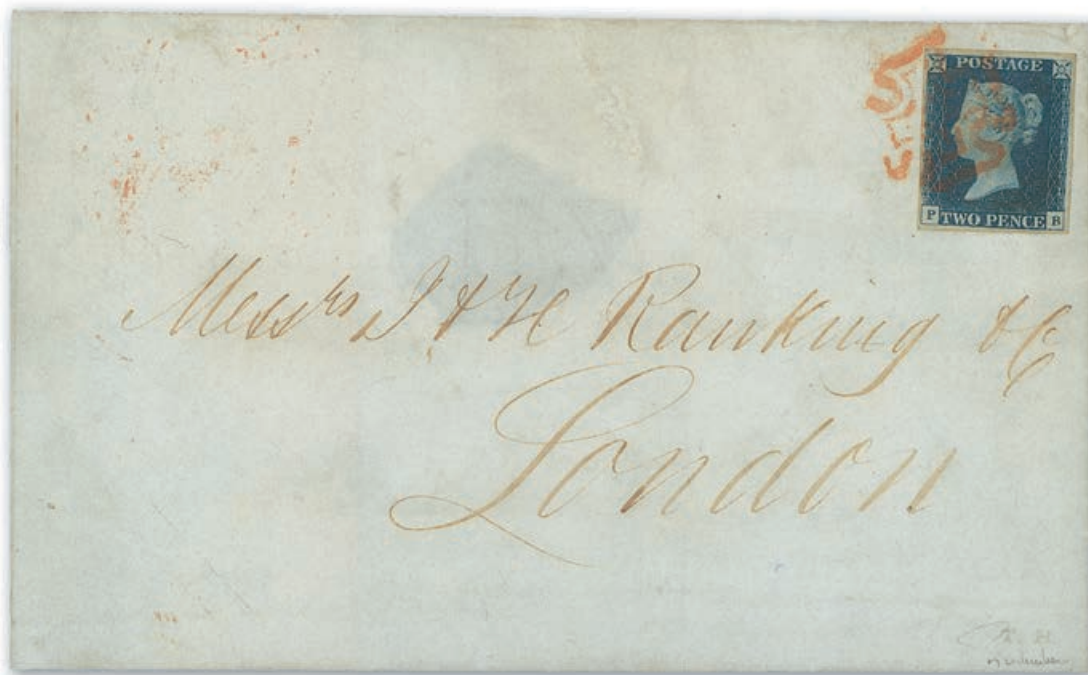 POSTAGE
P TWO PENCE B
Messrs J & H Ranking & Co
London